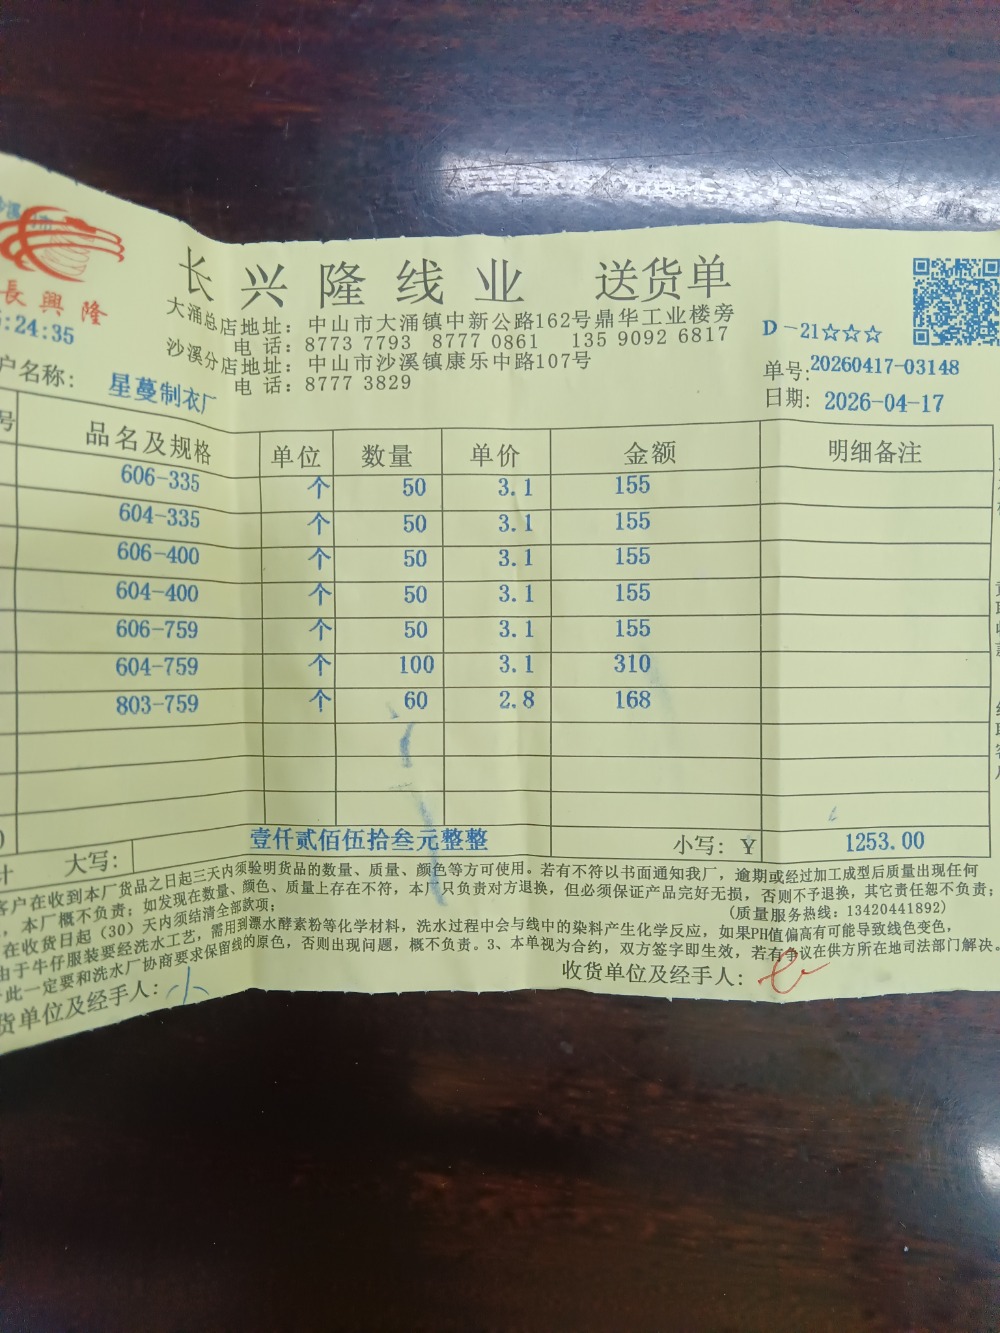 沙溪
長興隆
5:24:35
长兴隆线业 送货单
大涌总店地址：中山市大涌镇中新公路162号鼎华工业楼旁
电 话：8773 7793 8777 0861 135 9092 6817
沙溪分店地址：中山市沙溪镇康乐中路107号
电 话：8777 3829
D-21☆☆☆
单号:20260417-03148
日期: 2026-04-17
户名称: 星蔓制衣厂
号 品名及规格 单位 数量 单价 金额 明细备注
606-335 个 50 3.1 155
604-335 个 50 3.1 155
606-400 个 50 3.1 155
604-400 个 50 3.1 155
606-759 个 50 3.1 155
604-759 个 100 3.1 310
803-759 个 60 2.8 168
计 大写: 壹仟贰佰伍拾叁元整整 小写: Y 1253.00
客户在收到本厂货品之日起三天内须验明货品的数量、质量、颜色等方可使用。若有不符以书面通知我厂，逾期或经过加工成型后质量出现任何
，本厂概不负责；如发现在数量、颜色、质量上存在不符，本厂只负责对方退换，但必须保证产品完好无损，否则不予退换，其它责任恕不负责；
在收货日起（30）天内须结清全部款项； (质量服务热线：13420441892)
由于牛仔服装要经洗水工艺，需用到漂水酵素粉等化学材料，洗水过程中会与线中的染料产生化学反应，如果PH值偏高有可能导致线色变色，
此一定要和洗水厂协商要求保留线的原色，否则出现问题，概不负责。3、本单视为合约，双方签字即生效，若有争议在供方所在地司法部门解决。
货单位及经手人: 小 收货单位及经手人: